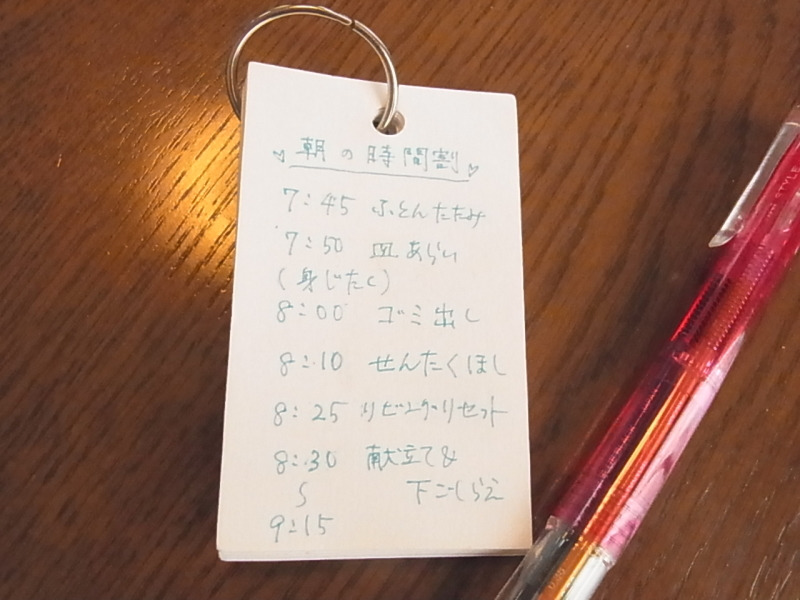 ♡朝の時間割♡
7:45 ふとんたたみ
7:50 皿あらい
(身じたく)
8:00 ゴミ出し
8:10 せんたくほし
8:25 リビングリセット
8:30 献立て&
〜 下ごしらえ
9:15
STYLE